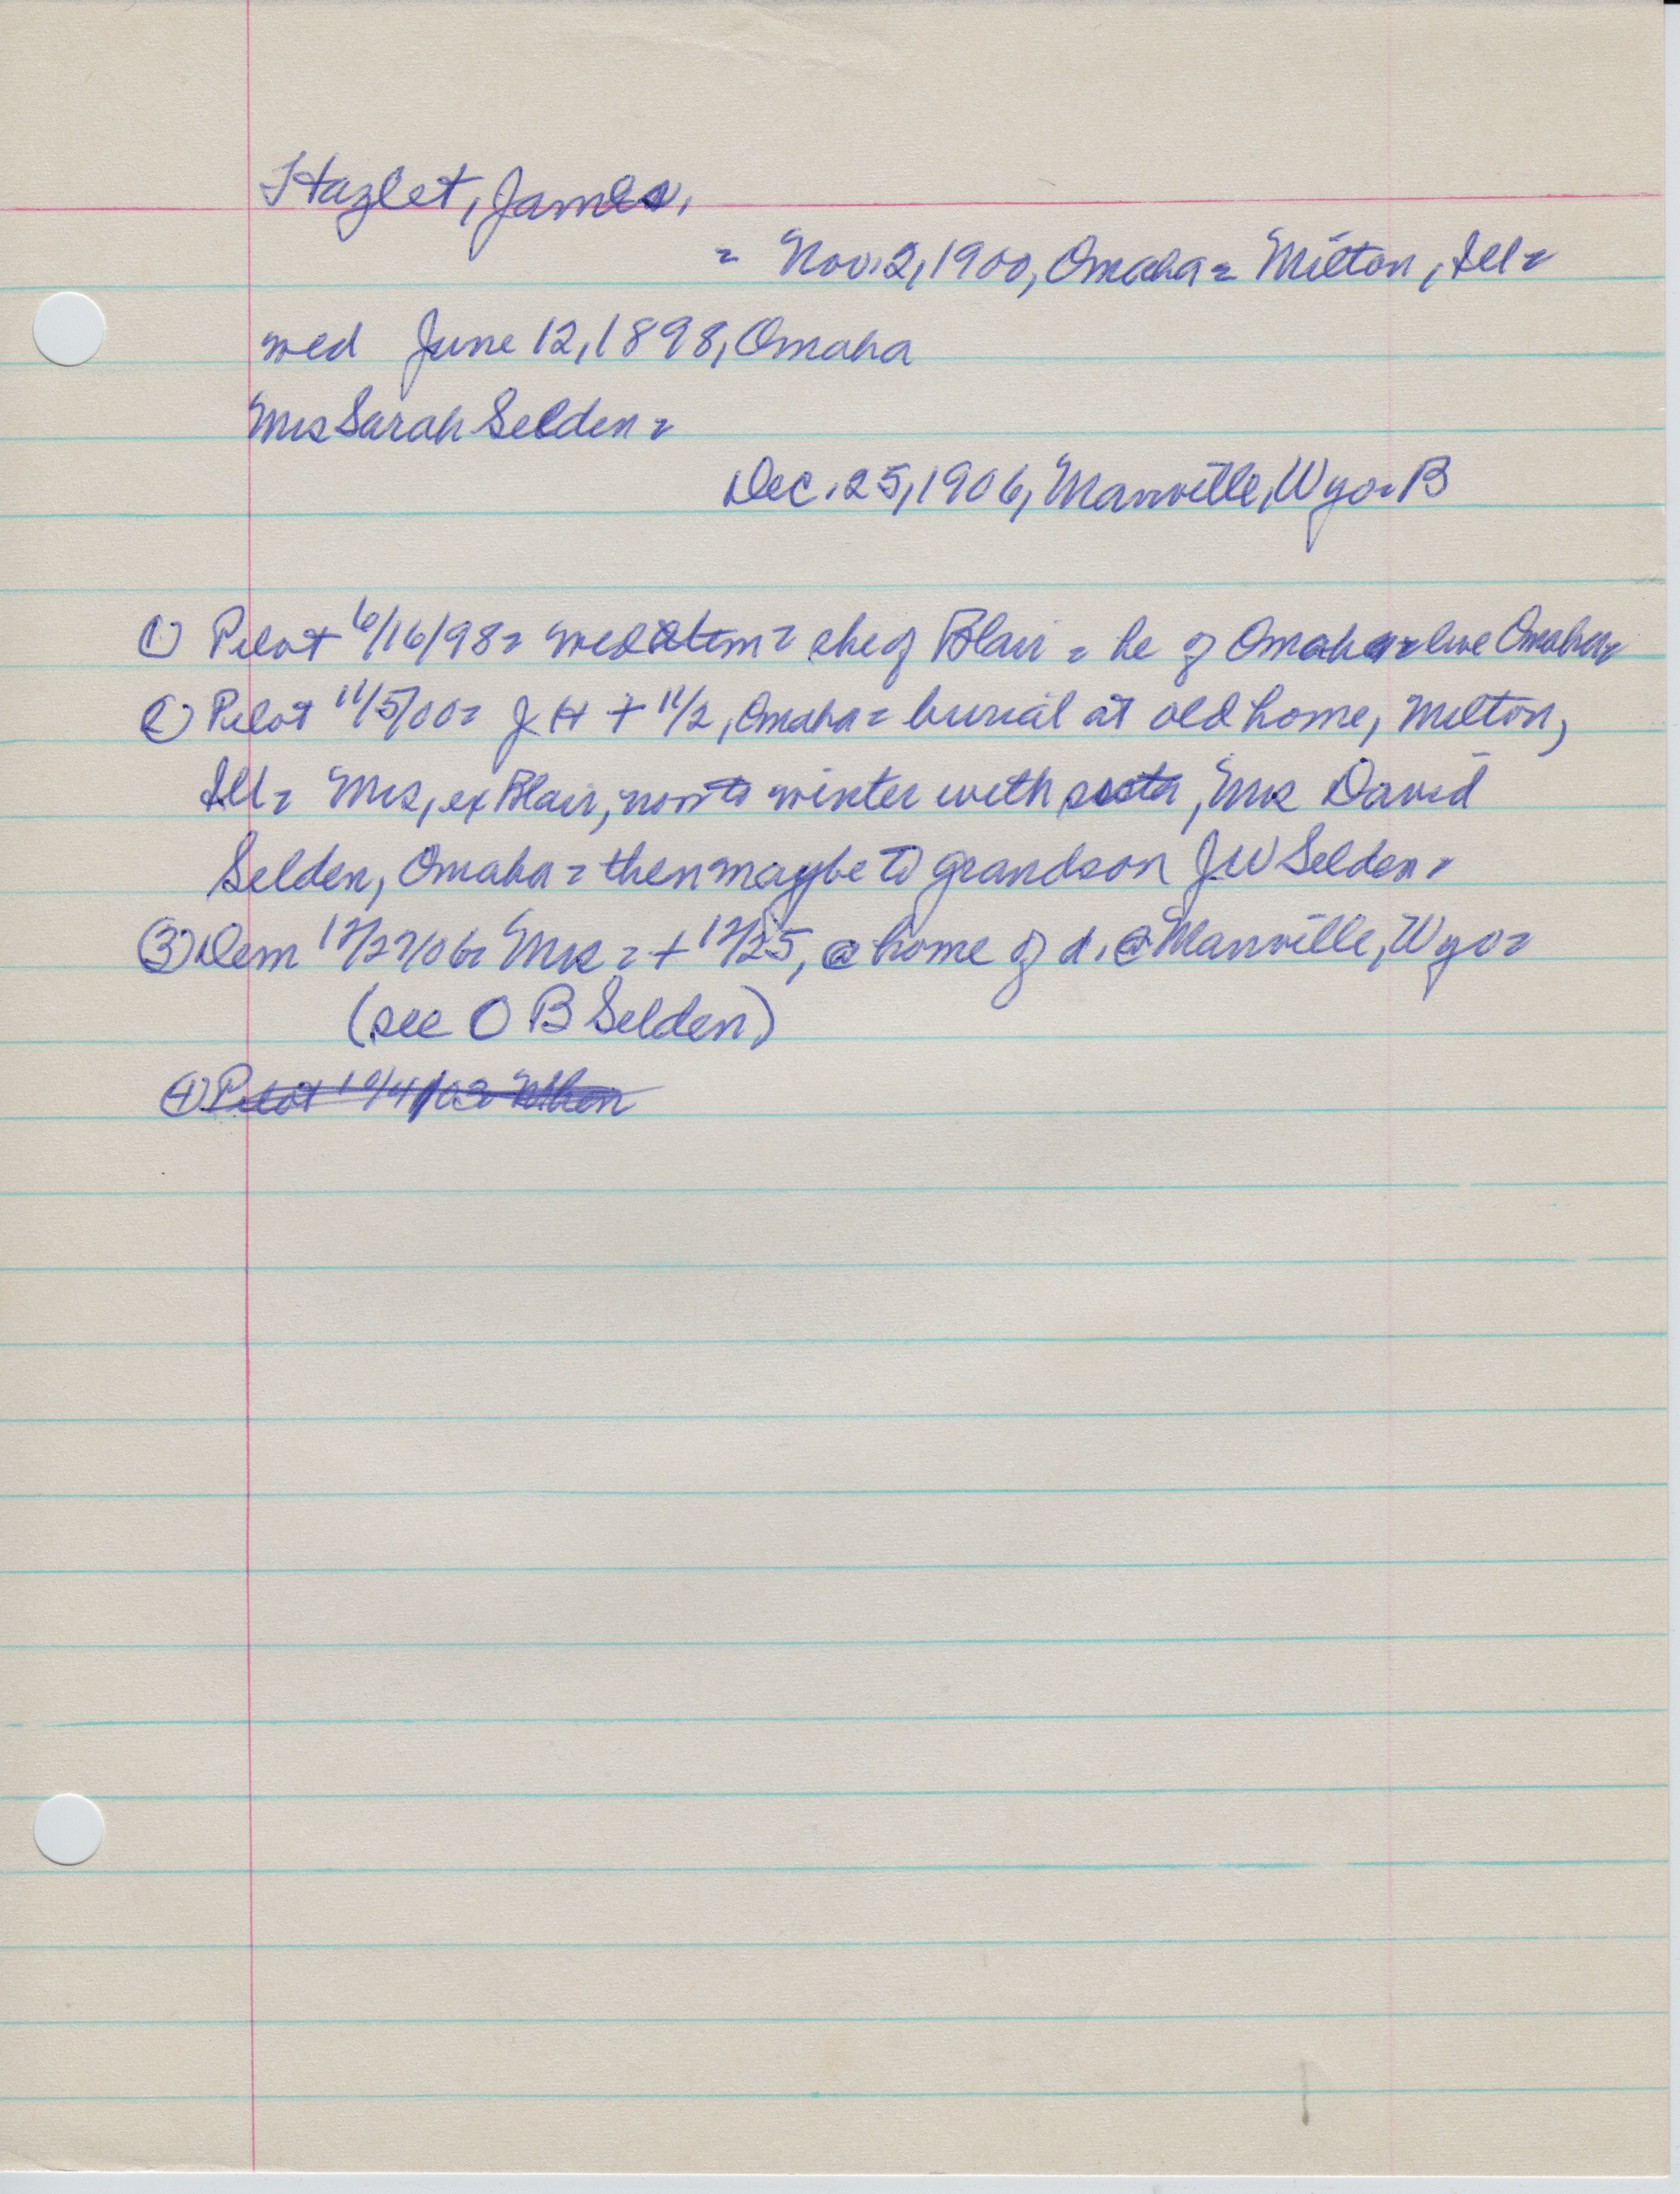 Hazlet, James,
= Nov. 2, 1900, Omaha = Milton, Ill =
wed June 12, 1898, Omaha
Mrs Sarah Selden =
Dec. 25, 1906, Manville, Wyo = B
① Pilot 6/16/98 = wed item = she of Blair = he of Omaha = live Omaha =
② Pilot 11/5/00 = J H + 11/2, Omaha = burial at old home, Milton,
Ill = Mrs, ex Blair, now to winter with, Mrs David
Selden, Omaha = then maybe to grandson J W Selden =
③ Dem 12/27/06 = Mrs = + 12/25, @ home of d. @ Manville, Wyo =
(see O B Selden)
④ Pilot